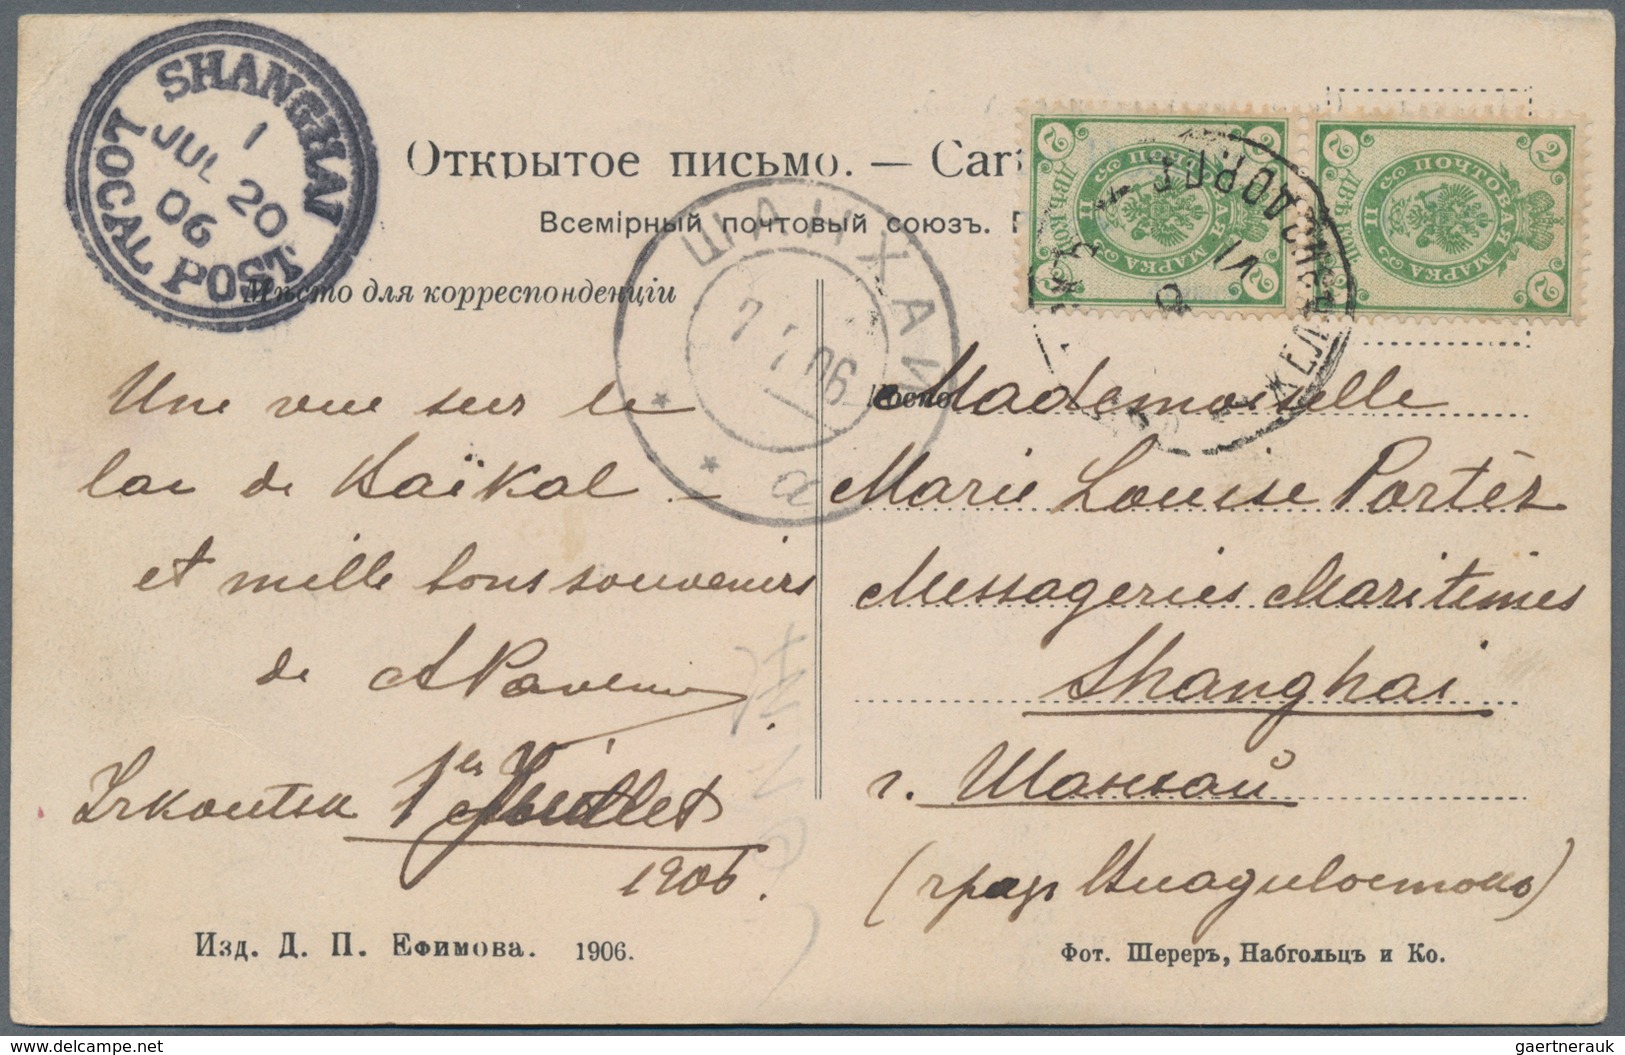 SHANGHAI
LOCAL POST
1
JUL 20
06
Открытое письмо. — Car
Всемірный почтовый союзъ.
Мѣсто для корреспонденціи
ШАНХАЙ
7 06
а
2 2
ПОЧТОВАЯ МАРКА
ДВѢ КОП.
2 2
2 2
ПОЧТОВАЯ МАРКА
ДВѢ КОП.
2 2
VI
Une vue sur le
lac de Baïkal –
et mille bons souvenirs
de
Irkoutsk 1er Juillet
1906.
Mademoiselle
Marie Louise Portèz
Messageries Maritimes
Shanghai
г. Шанхай
( Владивостокъ)
Изд. Д. П. Ефимова. 1906.
Фот. Шереръ, Набгольцъ и Ко.
delcampe.net
gaertnerauk